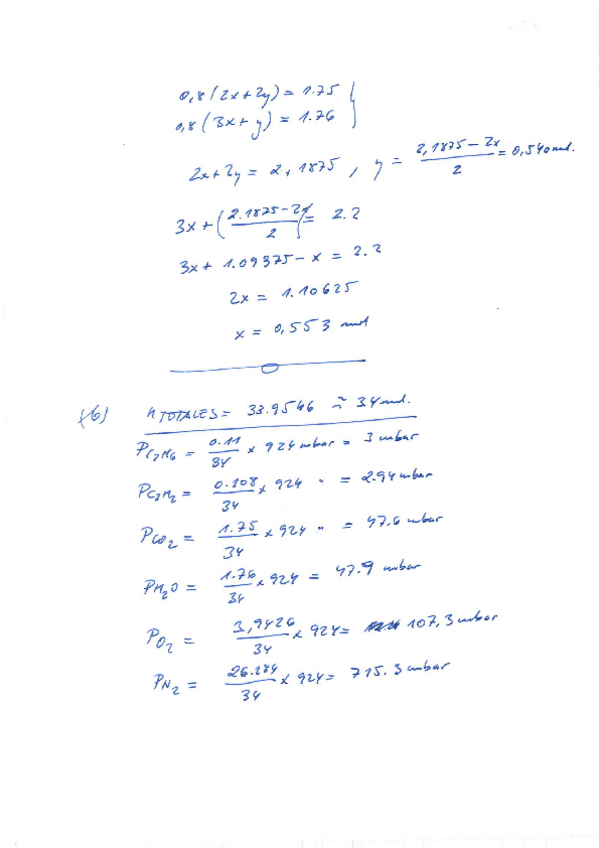 0,8(2x+2y) = 1.75
0,8(3x+y) = 1.76
2x+2y = 2,1875 , y = (2,1875 - 2x)/2 = 0,540 mol.
3x + (2.1875-2x)/2 = 2.2
3x + 1.09375 - x = 2.2
2x = 1.10625
x = 0,553 mol
(b) n TOTALES = 33.9546 ≈ 34 mol.
P C2H6 = 0.11/34 x 924 mbar = 3 mbar
P C2H2 = 0.108/34 x 924 " = 2.94 mbar
P CO2 = 1.75/34 x 924 " = 47.6 mbar
P H2O = 1.76/34 x 924 = 47.9 mbar
P O2 = 3,9426/34 x 924 = 107,3 mbar
P N2 = 26.284/34 x 924 = 715.3 mbar